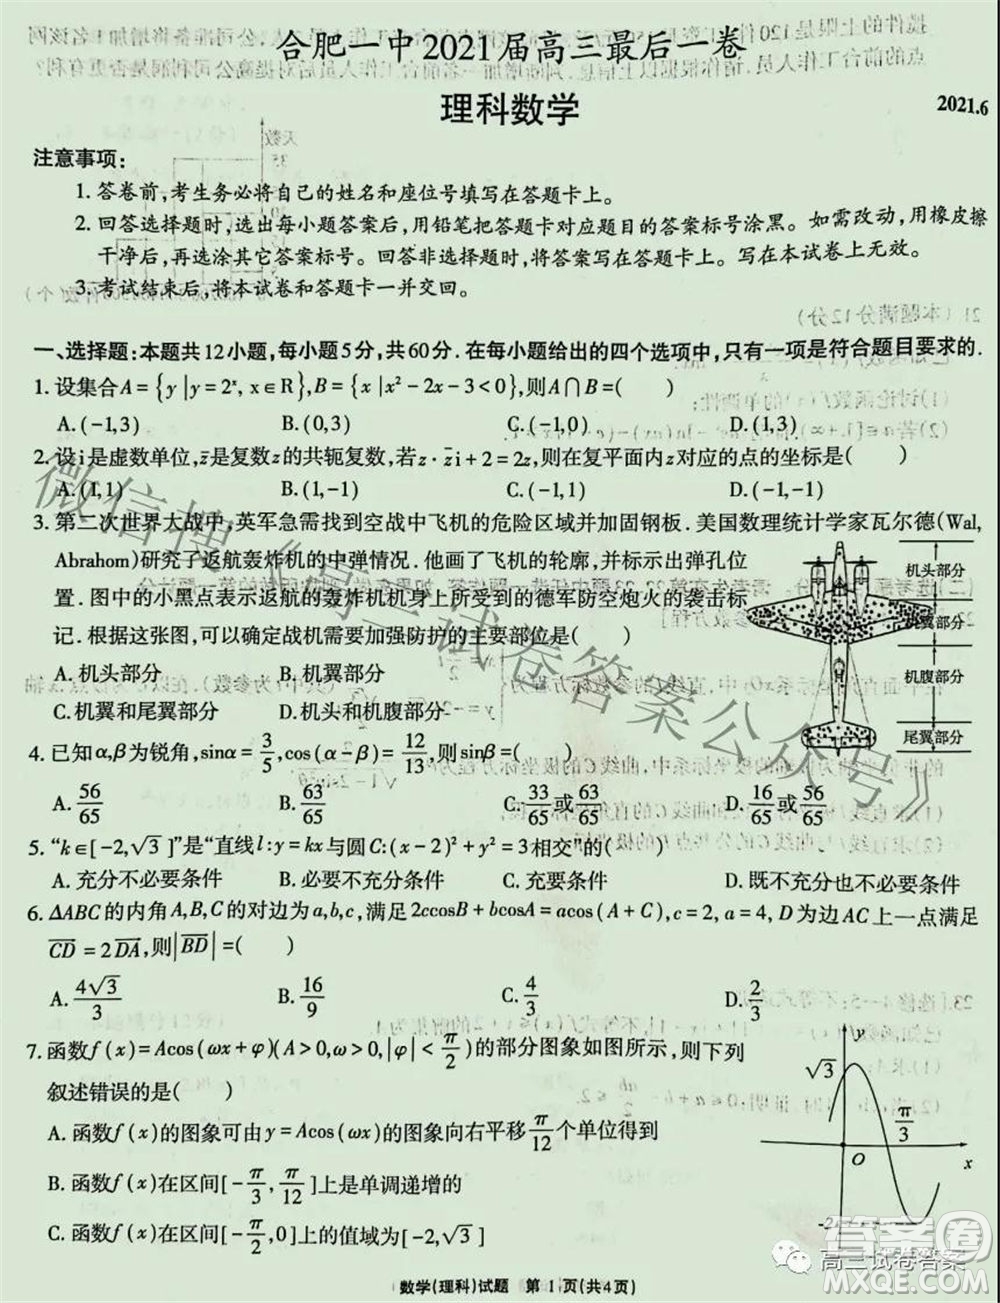 合肥一中2021届高三最后一卷
理科数学
2021.6
注意事项：
1. 答卷前，考生务必将自己的姓名和座位号填写在答题卡上。
2. 回答选择题时，选出每小题答案后，用铅笔把答题卡对应题目的答案标号涂黑。如需改动，用橡皮擦
干净后，再选涂其它答案标号。回答非选择题时，将答案写在答题卡上。写在本试卷上无效。
3. 考试结束后，将本试卷和答题卡一并交回。
一、选择题：本题共12小题，每小题5分，共60分．在每小题给出的四个选项中，只有一项是符合题目要求的．
1. 设集合A＝{y|y＝2ˣ, x∈R}, B＝{x|x²－2x－3＜0}, 则A∩B＝(　　)
A. (－1,3)　B. (0,3)　C. (－1,0)　D. (1,3)
2. 设i是虚数单位, z̄是复数z的共轭复数, 若z·z̄i＋2＝2z, 则在复平面内z对应的点的坐标是(　　)
A. (1,1)　B. (1,－1)　C. (－1,1)　D. (－1,－1)
3. 第二次世界大战中，英军急需找到空战中飞机的危险区域并加固钢板．美国数理统计学家瓦尔德(Wal,
Abrahom)研究了返航轰炸机的中弹情况．他画了飞机的轮廓，并标示出弹孔位
置．图中的小黑点表示返航的轰炸机机身上所受到的德军防空炮火的袭击标
记．根据这张图，可以确定战机需要加强防护的主要部位是(　　)
A. 机头部分　B. 机翼部分
C. 机翼和尾翼部分　D. 机头和机腹部分
机头部分
机翼部分
机腹部分
尾翼部分
4. 已知α,β为锐角, sinα＝3/5, cos(α－β)＝12/13, 则sinβ＝(　　)
A. 56/65　B. 63/65　C. 33/65或63/65　D. 16/65或56/65
5. “k∈[－2,√3]”是“直线l:y＝kx与圆C:(x－2)²＋y²＝3相交”的(　　)
A. 充分不必要条件　B. 必要不充分条件　C. 充要条件　D. 既不充分也不必要条件
6. ΔABC的内角A,B,C的对边为a,b,c, 满足2ccosB＋bcosA＝acos(A＋C), c＝2, a＝4, D为边AC上一点满足
CD＝2DA, 则|BD|＝(　　)
A. 4√3/3　B. 16/9　C. 4/3　D. 2/3
7. 函数f(x)＝Acos(ωx＋φ)(A＞0,ω＞0,|φ|＜π/2)的部分图象如图所示，则下列
叙述错误的是(　　)
A. 函数f(x)的图象可由y＝Acos(ωx)的图象向右平移π/12个单位得到
B. 函数f(x)在区间[－π/3,π/12]上是单调递增的
C. 函数f(x)在区间[－π/2,0]上的值域为[－2,√3]
y
√3
π/3
O
x
-2
数学(理科)试题　第1页(共4页)
微信搜《高三试卷答案公众号》
高三试卷答案
答案圈
MXQE.COM